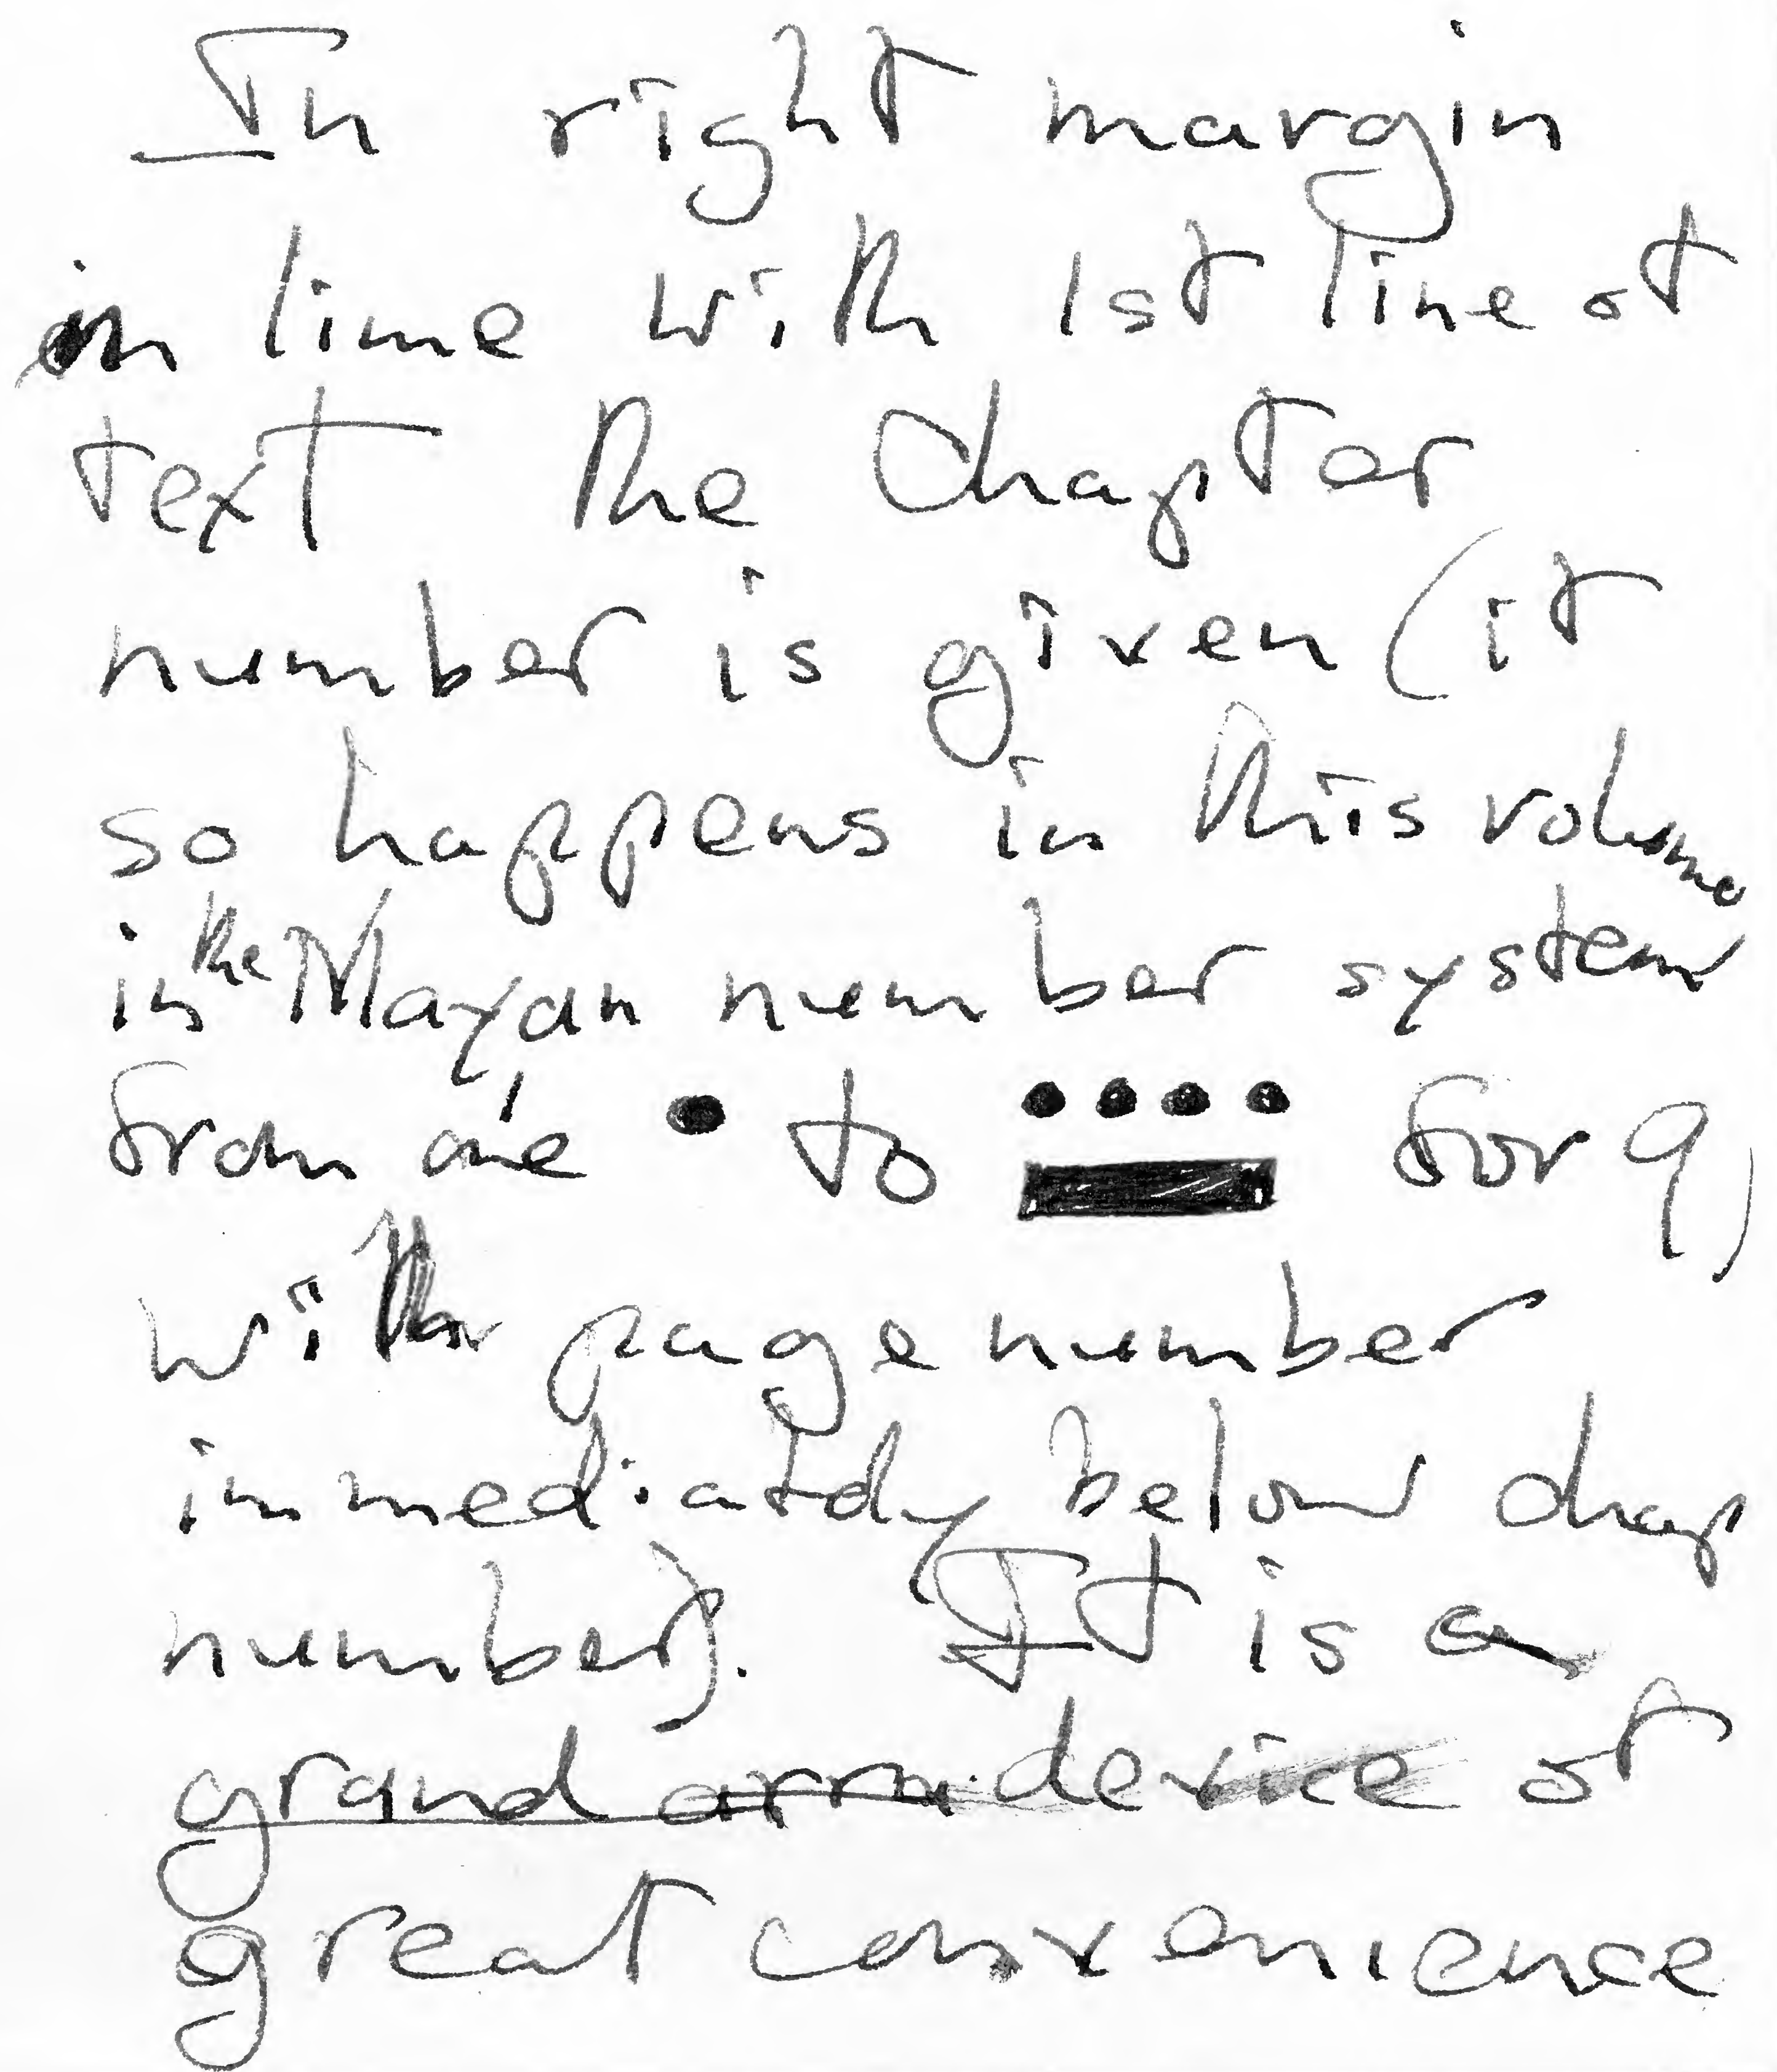 In right margin
in line with 1st line of
text the chapter
number is given (it
so happens in this volume
in the Mayan number system
from one • to •••• for 9)
with page number
immediately below chap
number). It is a
grand arra device of
great convenience